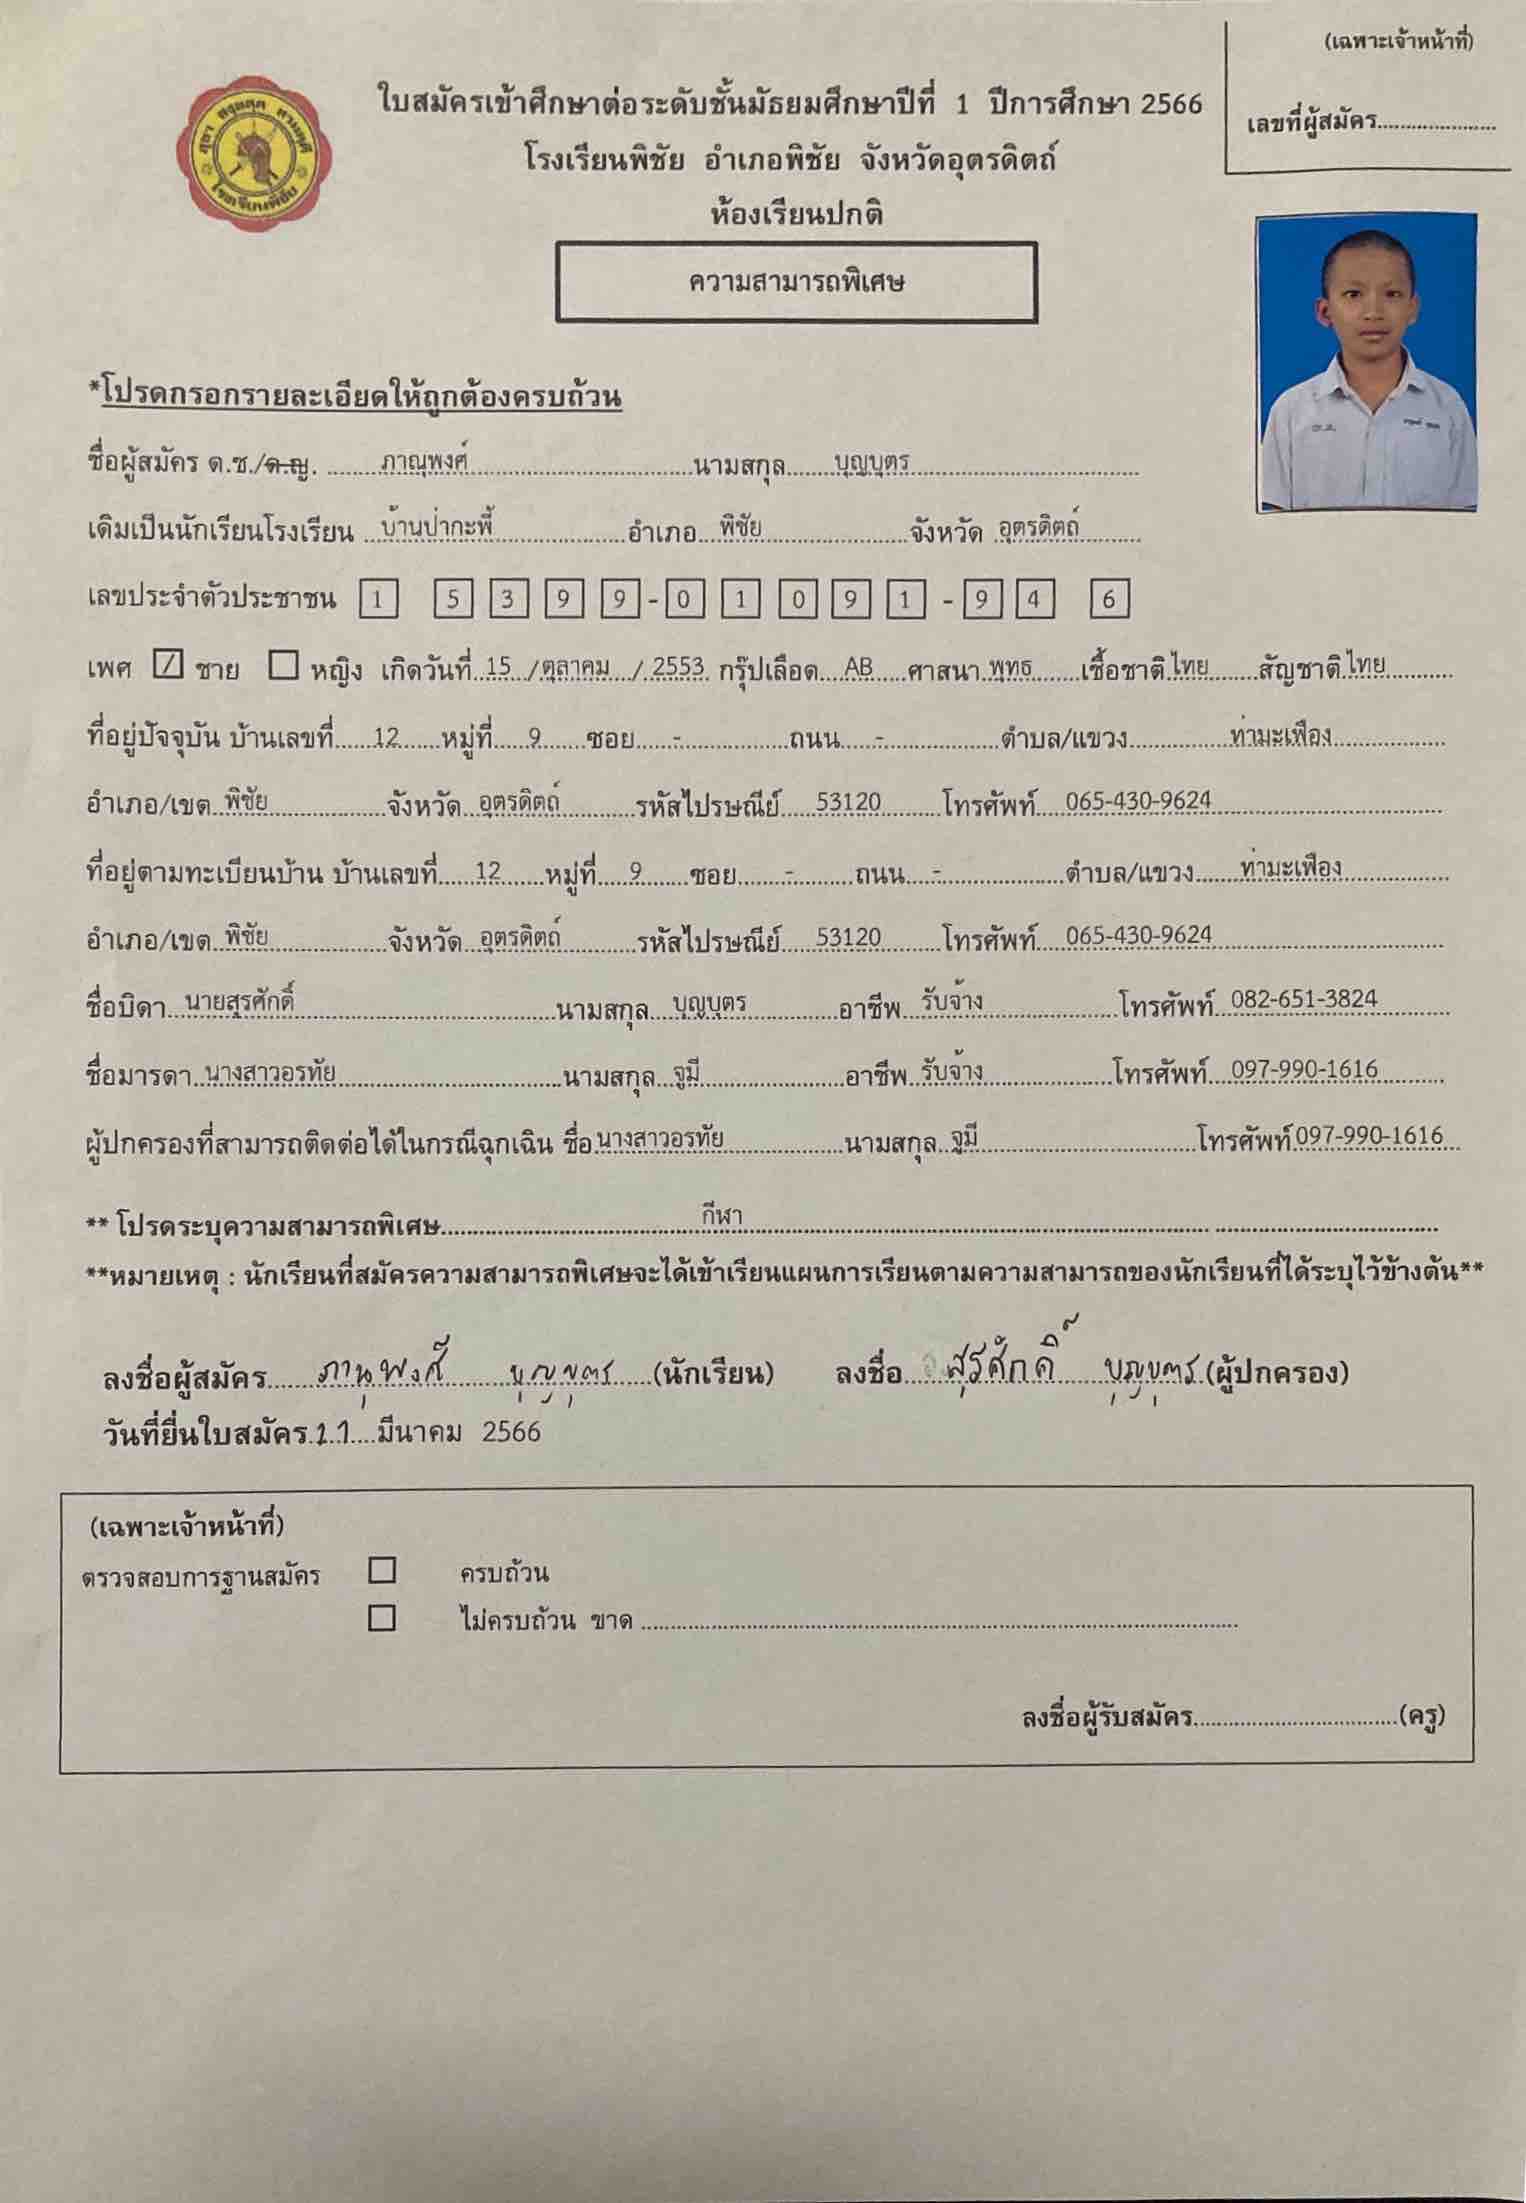 (เฉพาะเจ้าหน้าที่)
เลขที่ผู้สมัคร....................
ใบสมัครเข้าศึกษาต่อระดับชั้นมัธยมศึกษาปีที่ 1 ปีการศึกษา 2566
โรงเรียนพิชัย อำเภอพิชัย จังหวัดอุตรดิตถ์
ห้องเรียนปกติ
ความสามารถพิเศษ
โรงเรียนพิชัย
*โปรดกรอกรายละเอียดให้ถูกต้องครบถ้วน
ชื่อผู้สมัคร ด.ช./ด.ญ. ภาณุพงศ์ นามสกุล บุญบุตร
เดิมเป็นนักเรียนโรงเรียน บ้านป่ากะพี้ อำเภอ พิชัย จังหวัด อุตรดิตถ์
เลขประจำตัวประชาชน 1 5 3 9 9 - 0 1 0 9 1 - 9 4 6
เพศ / ชาย หญิง เกิดวันที่ 15 / ตุลาคม / 2553 กรุ๊ปเลือด AB ศาสนา พุทธ เชื้อชาติ ไทย สัญชาติ ไทย
ที่อยู่ปัจจุบัน บ้านเลขที่ 12 หมู่ที่ 9 ซอย - ถนน - ตำบล/แขวง ท่ามะเฟือง
อำเภอ/เขต พิชัย จังหวัด อุตรดิตถ์ รหัสไปรษณีย์ 53120 โทรศัพท์ 065-430-9624
ที่อยู่ตามทะเบียนบ้าน บ้านเลขที่ 12 หมู่ที่ 9 ซอย - ถนน - ตำบล/แขวง ท่ามะเฟือง
อำเภอ/เขต พิชัย จังหวัด อุตรดิตถ์ รหัสไปรษณีย์ 53120 โทรศัพท์ 065-430-9624
ชื่อบิดา นายสุรศักดิ์ นามสกุล บุญบุตร อาชีพ รับจ้าง โทรศัพท์ 082-651-3824
ชื่อมารดา นางสาวอรทัย นามสกุล จูมี อาชีพ รับจ้าง โทรศัพท์ 097-990-1616
ผู้ปกครองที่สามารถติดต่อได้ในกรณีฉุกเฉิน ชื่อ นางสาวอรทัย นามสกุล จูมี โทรศัพท์ 097-990-1616
** โปรดระบุความสามารถพิเศษ กีฬา
**หมายเหตุ : นักเรียนที่สมัครความสามารถพิเศษจะได้เข้าเรียนแผนการเรียนตามความสามารถของนักเรียนที่ได้ระบุไว้ข้างต้น**
ลงชื่อผู้สมัคร ภานุพงศ์ บุญบุตร (นักเรียน) ลงชื่อ สุรศักดิ์ บุญบุตร (ผู้ปกครอง)
วันที่ยื่นใบสมัคร 11 มีนาคม 2566
(เฉพาะเจ้าหน้าที่)
ตรวจสอบการฐานสมัคร ครบถ้วน
ไม่ครบถ้วน ขาด
ลงชื่อผู้รับสมัคร (ครู)